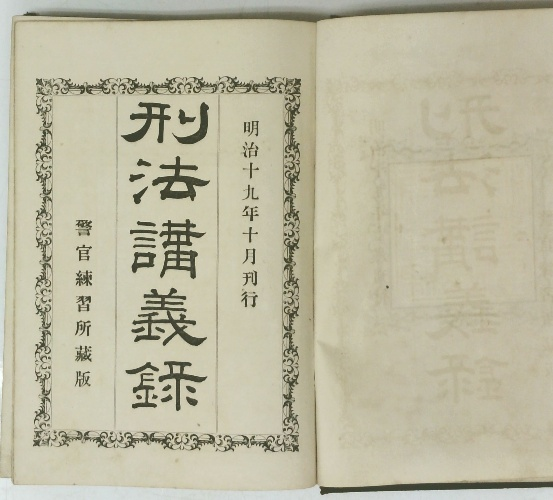 明治十九年十月刊行
刑法講義録
警官練習所藏版